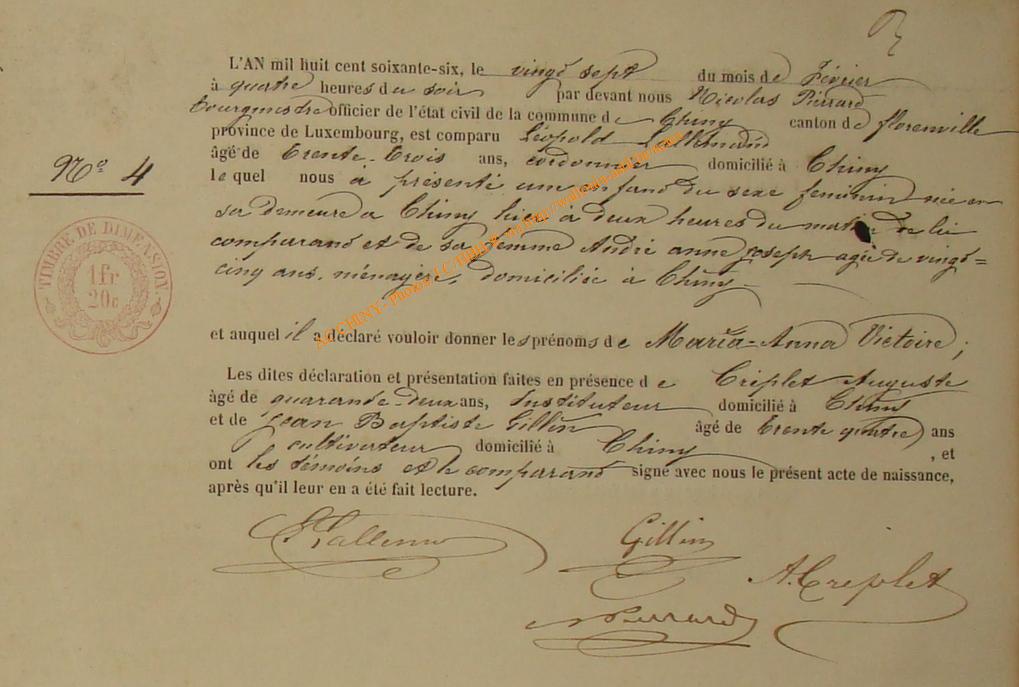 L'AN mil huit cent soixante-six, le vingt sept du mois de Février
à quatre heures du soir par devant nous Nicolas Pierrard
bourgmestre officier de l'état civil de la commune de Chiny canton de florenville
province de Luxembourg, est comparu Léopold Lallemand
âgé de trente-trois ans, cordonnier domicilié à Chiny
le quel nous a présenté une enfant du sexe feminin née en
sa demeure a Chiny hier à deux heures du matin de lui
comparant et de sa femme André anne joseph agée de vingt=
cinq ans, ménagère, domiciliée à Chiny
et auquel il a déclaré vouloir donner les prénoms de Maria-Anna Victoire;
Les dites déclaration et présentation faites en présence de Criplet Auguste
âgé de quarante-deux ans, Instituteur domicilié à Chiny
et de Jean Baptiste Gillin âgé de trente quatre ans
cultivateur domicilié à Chiny, et
ont les témoins et le comparant signé avec nous le présent acte de naissance,
après qu'il leur en a été fait lecture.
N° 4
TIMBRE DE DIMENSION
1 fr
20 c
Lallemand
Gillin
A. Criplet
Pierrard